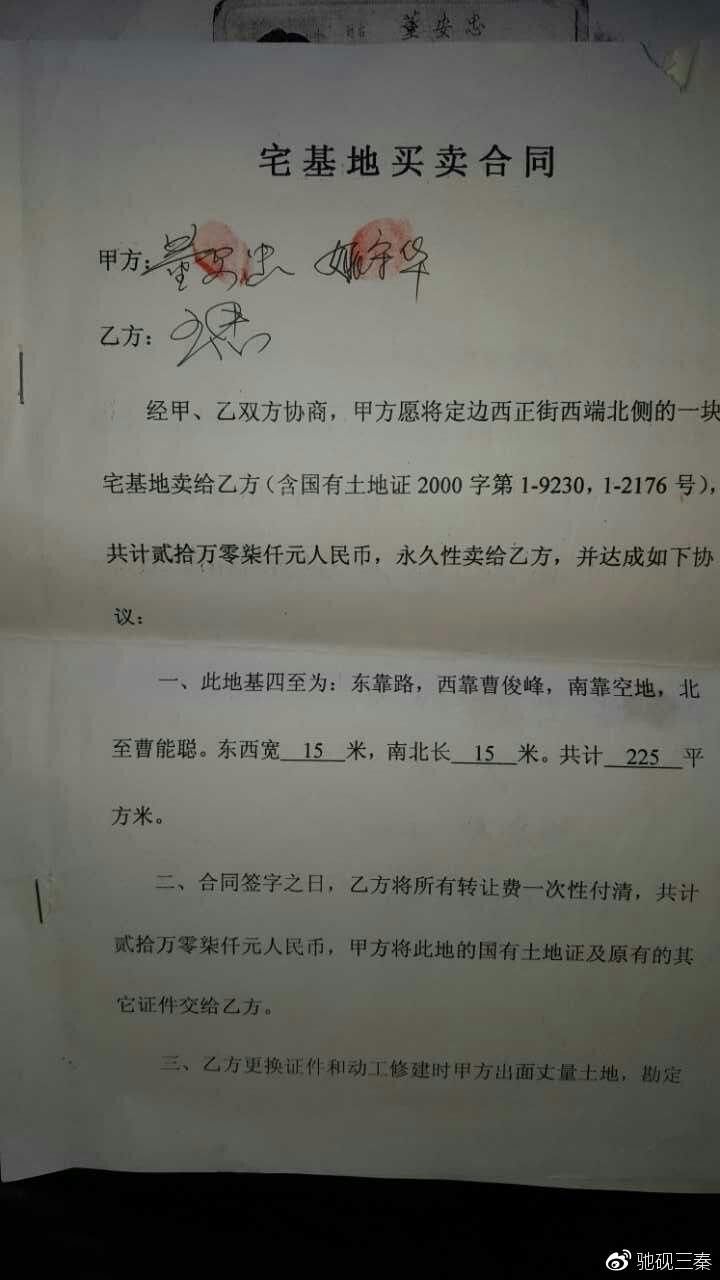 董安忠
宅基地买卖合同
甲方：董安忠 姬守华
乙方：
经甲、乙双方协商，甲方愿将定边西正街西端北侧的一块
宅基地卖给乙方（含国有土地证 2000 字第 1-9230，1-2176 号），
共计贰拾万零柒仟元人民币，永久性卖给乙方，并达成如下协
议：
一、此地基四至为：东靠路，西靠曹俊峰，南靠空地，北
至曹能聪。东西宽 15 米，南北长 15 米。共计 225 平
方米。
二、合同签字之日，乙方将所有转让费一次性付清，共计
贰拾万零柒仟元人民币，甲方将此地的国有土地证及原有的其
它证件交给乙方。
三、乙方更换证件和动工修建时甲方出面丈量土地，勘定
驰砚三秦